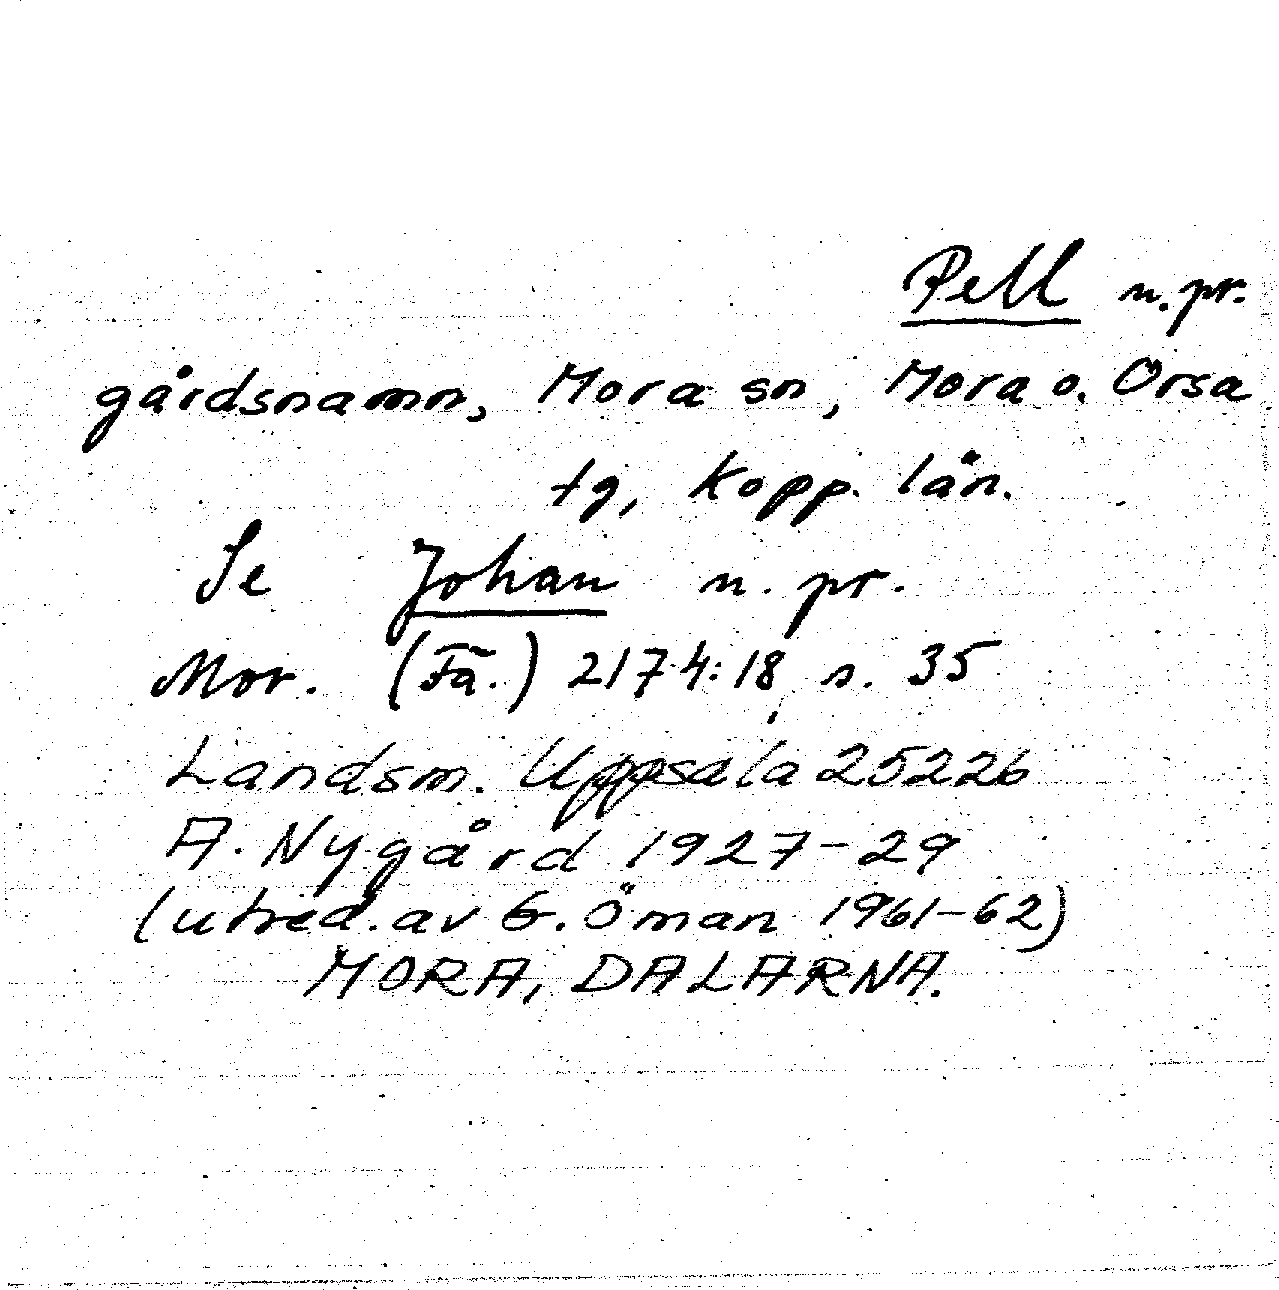 Pell n. pr.
gårdsnamn, Mora sn, Mora o. Orsa
tg, Kopp. län.
Se Johan n. pr.
Mor. (Fä.) 2174:18, s. 35
Landsm. Uppsala 25226
A. Nygård 1927-29
(utred. av G. Öman 1961-62)
MORA, DALARNA.